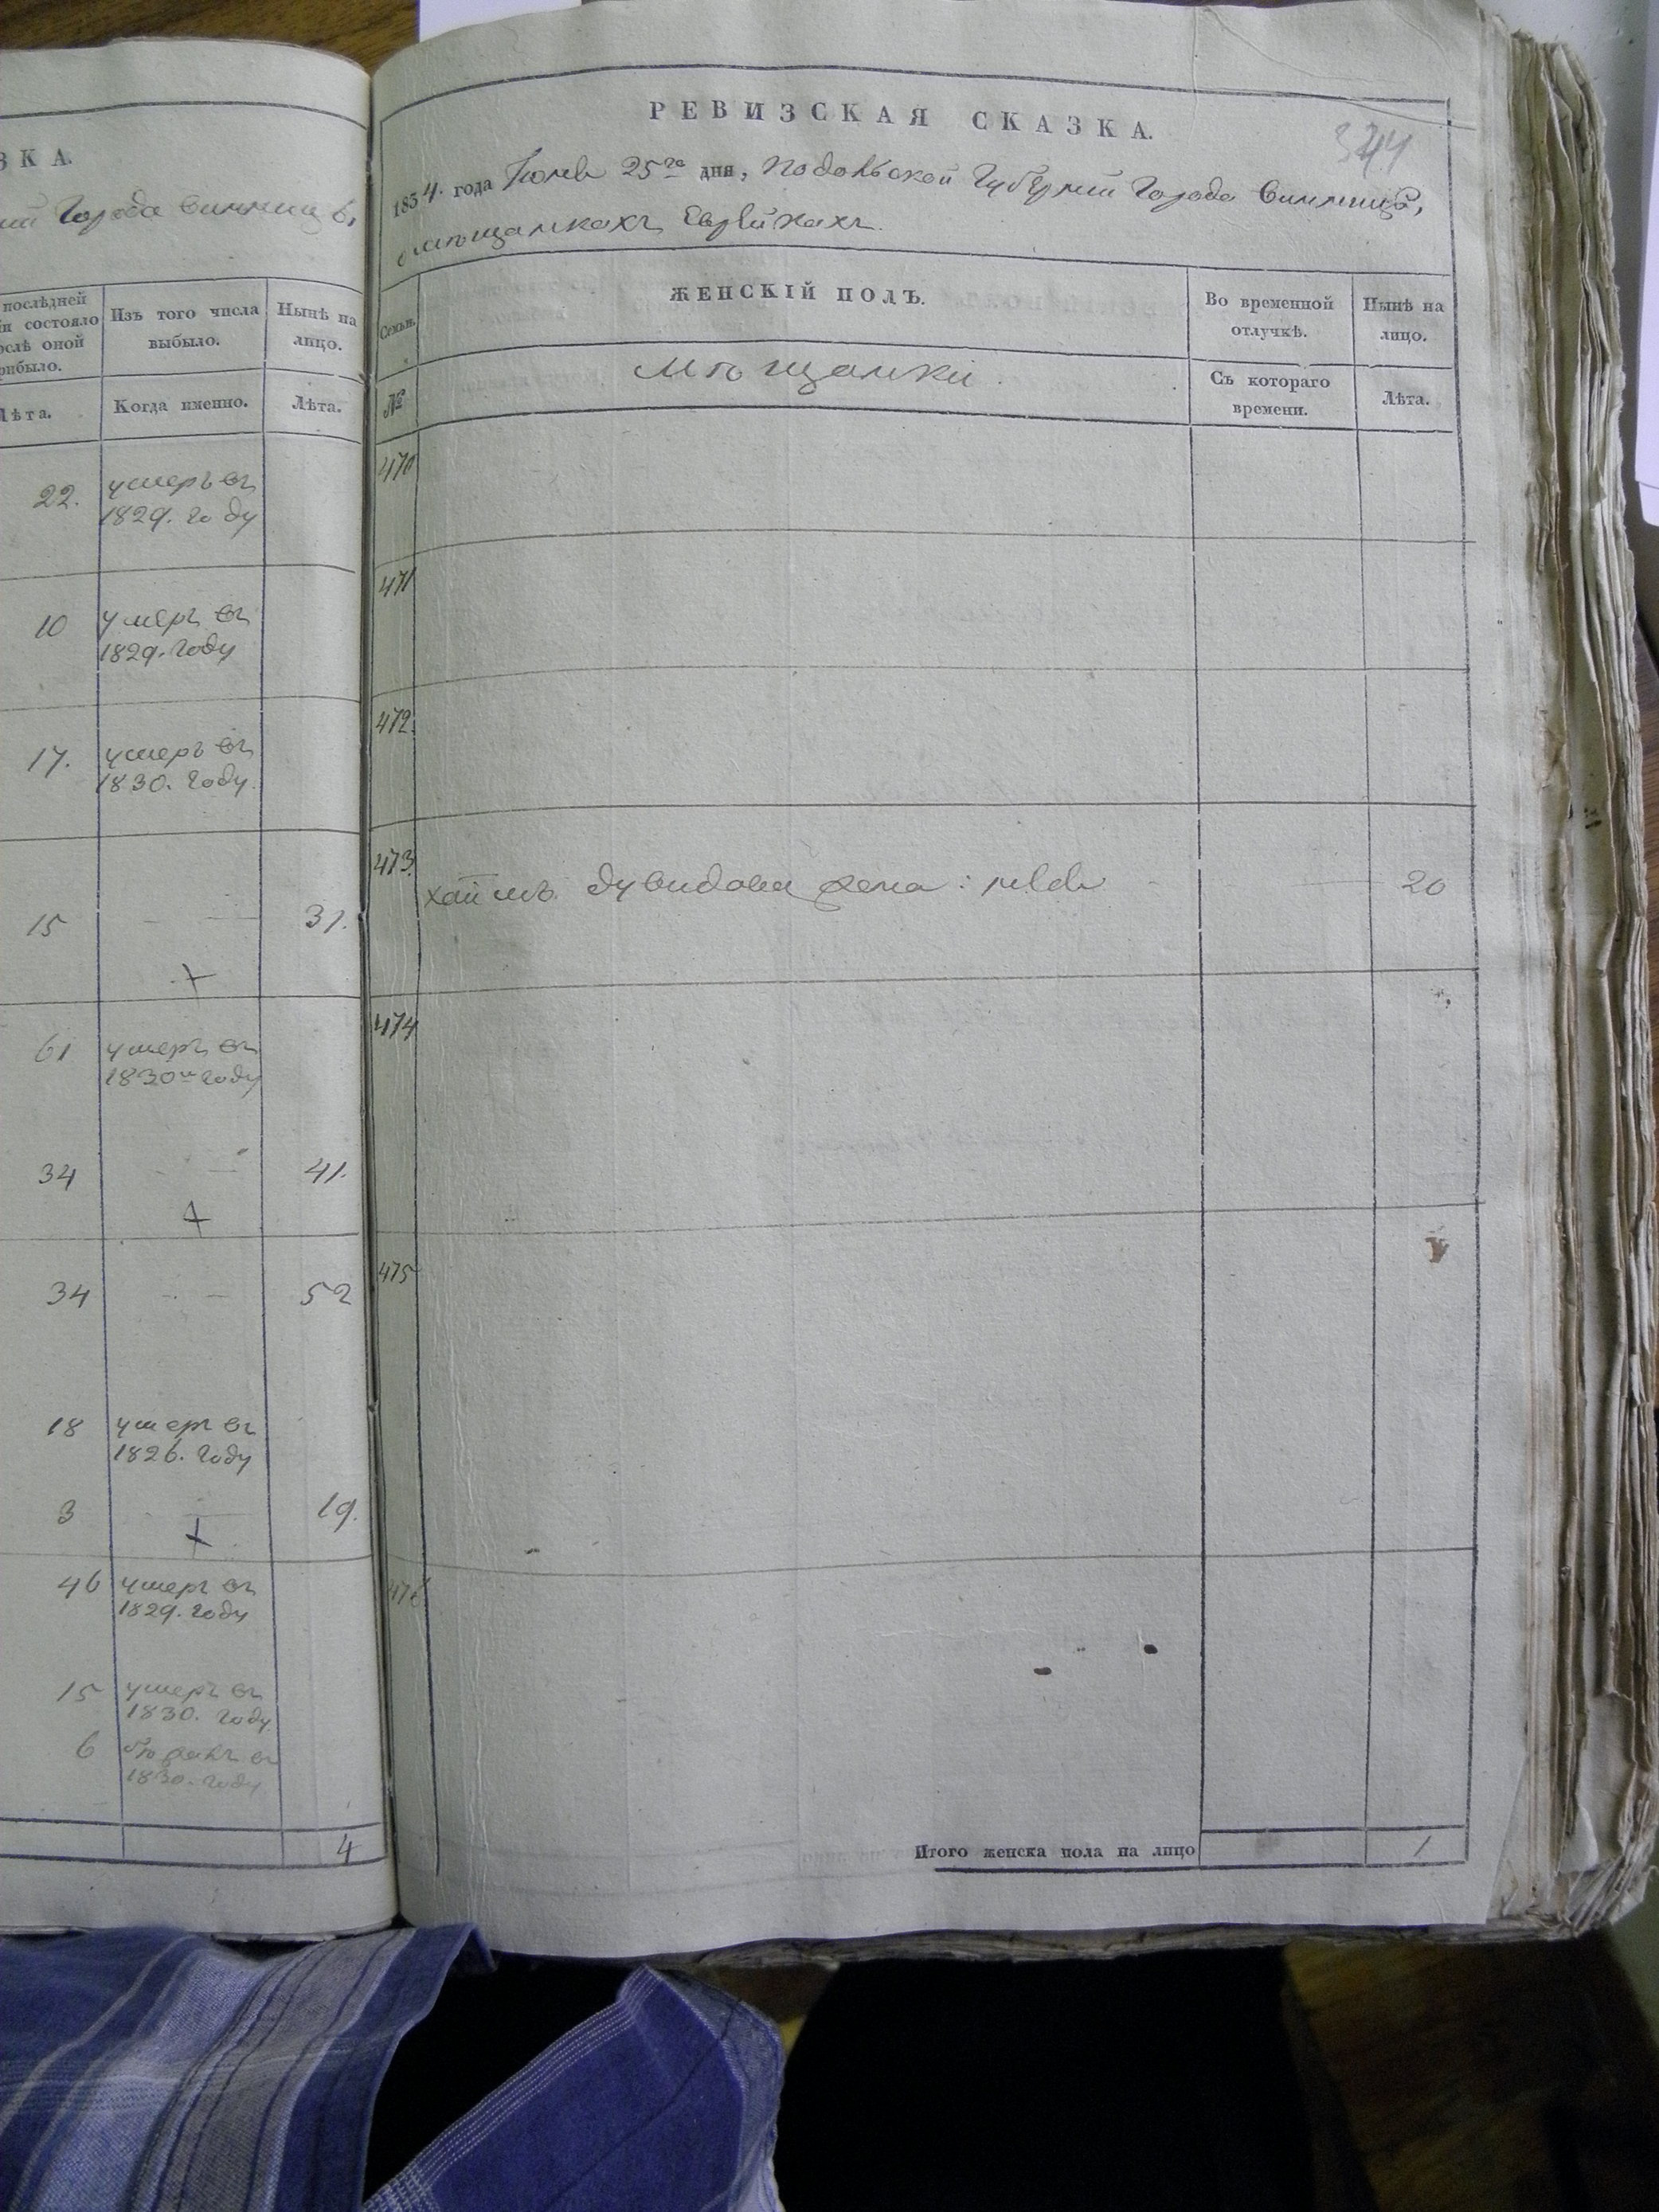 ЗКА.
ій Города Винницы,
послѣдней
и состояло
ослѣ оной
рибыло.
Изъ того числа
выбыло.
Нынѣ на
лицо.
Лѣта.
Когда именно.
Лѣта.
22. умеръ въ
1829. году
10 умеръ въ
1829. году
17. умеръ въ
1830. году.
15 — 31.
+
61 умеръ въ
1830 году
34 — 41.
+
34 — 52
18 умеръ въ
1826. году
3 — 19.
+
46 умеръ въ
1829. году
15 умеръ въ
1830. году
6 въ
1830. году
4
РЕВИЗСКАЯ СКАЗКА.
344
1834. года 25го дня, Подольской Губерніи Города Винницы,
о мѣщанкахъ Еврейкахъ.
Семьи.
ЖЕНСКІЙ ПОЛЪ.
Во временной
отлучкѣ.
Нынѣ на
лицо.
№
Мѣщанки.
Съ котораго
времени.
Лѣта.
470
471
472.
473.
Дувидова жена: — 20
474
475
476
Итого женска пола на лицо 1